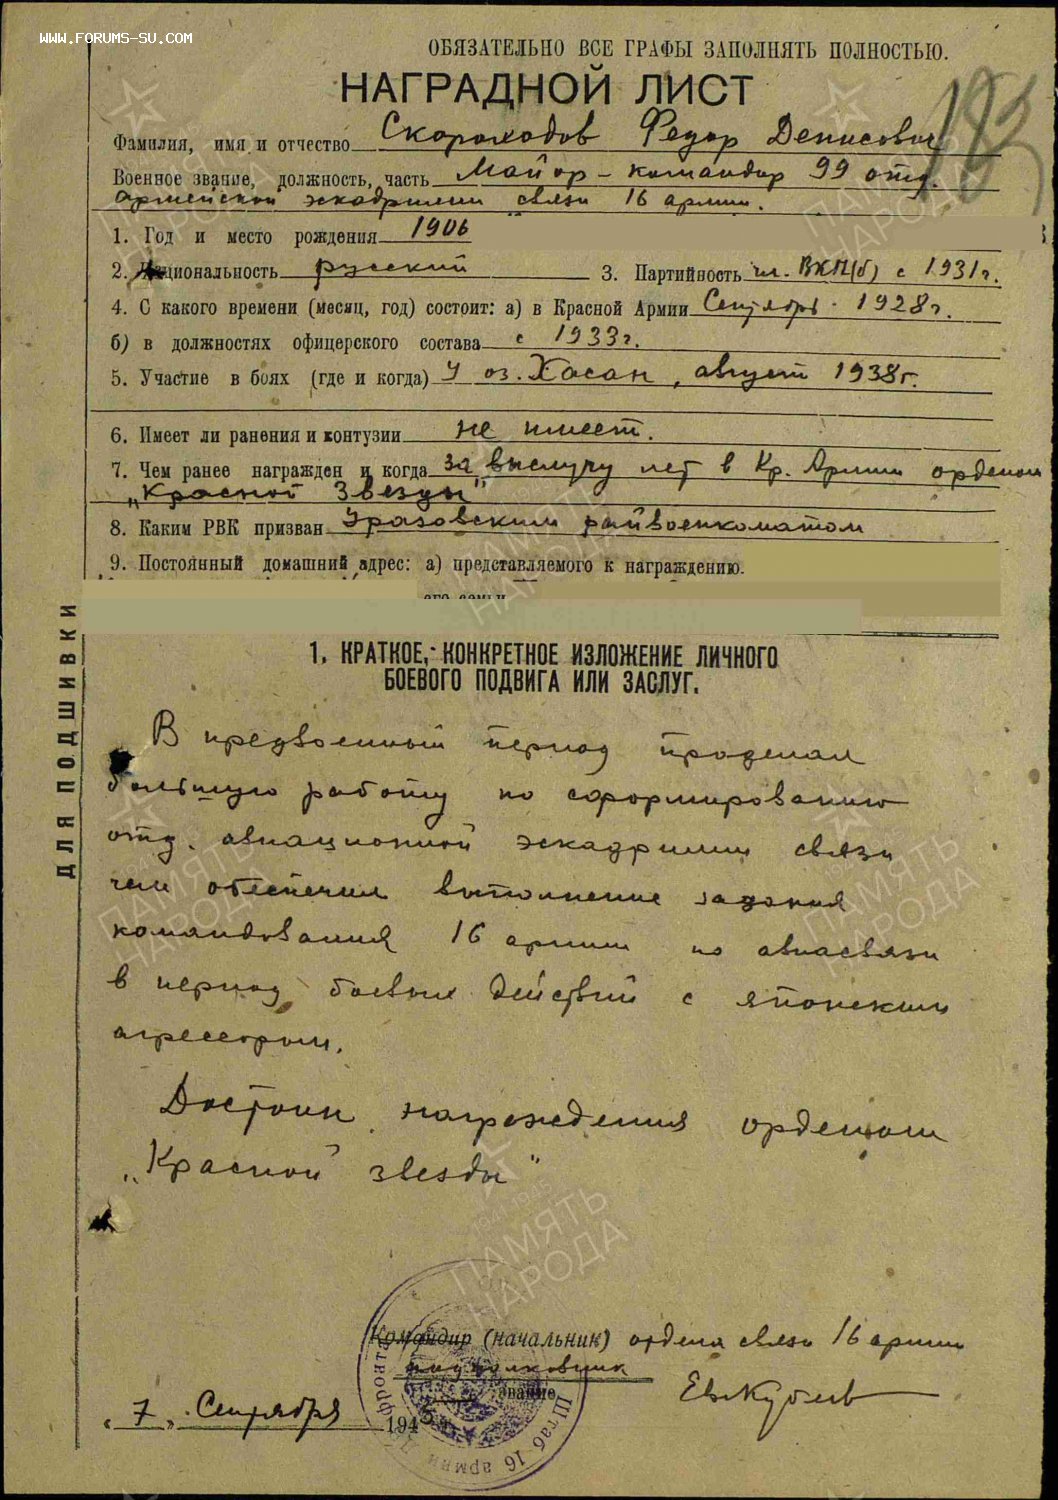 WWW.FORUMS-SU.COM
ОБЯЗАТЕЛЬНО ВСЕ ГРАФЫ ЗАПОЛНЯТЬ ПОЛНОСТЬЮ.
183
НАГРАДНОЙ ЛИСТ
Фамилия, имя и отчество Скороходов Федор Денисович
Военное звание, должность, часть Майор – командир 99 отд.
армейской эскадрилии связи 16 армии.
1. Год и место рождения 1906
2. Национальность русский 3. Партийность чл. ВКП(б) с 1931г.
4. С какого времени (месяц, год) состоит: а) в Красной Армии Сентябрь - 1928г.
б) в должностях офицерского состава с 1933г.
5. Участие в боях (где и когда) У оз. Хасан, август 1938г.
6. Имеет ли ранения и контузии не имеет.
7. Чем ранее награжден и когда за выслугу лет в Кр. Армии орденом
„Красной Звезды"
8. Каким РВК призван Уразовским райвоенкоматом
9. Постоянный домашний адрес: а) представляемого к награждению.
его семьи
ДЛЯ ПОДШИВКИ
1. КРАТКОЕ, КОНКРЕТНОЕ ИЗЛОЖЕНИЕ ЛИЧНОГО
БОЕВОГО ПОДВИГА ИЛИ ЗАСЛУГ.
В предвоенный период проделал
большую работу по сформированию
отд. авиационной эскадрилии связи
чем обеспечил выполнение задания
командования 16 армии по авиасвязи
в период боевых действий с японским
агрессором.
Достоин награждения орденом
„Красной звезды"
Командир (начальник) отдела связи 16 армии
подполковник
звание
„ 7 „ Сентября 1945
Штаб 16 армии фронта
ПАМЯТЬ
НАРОДА